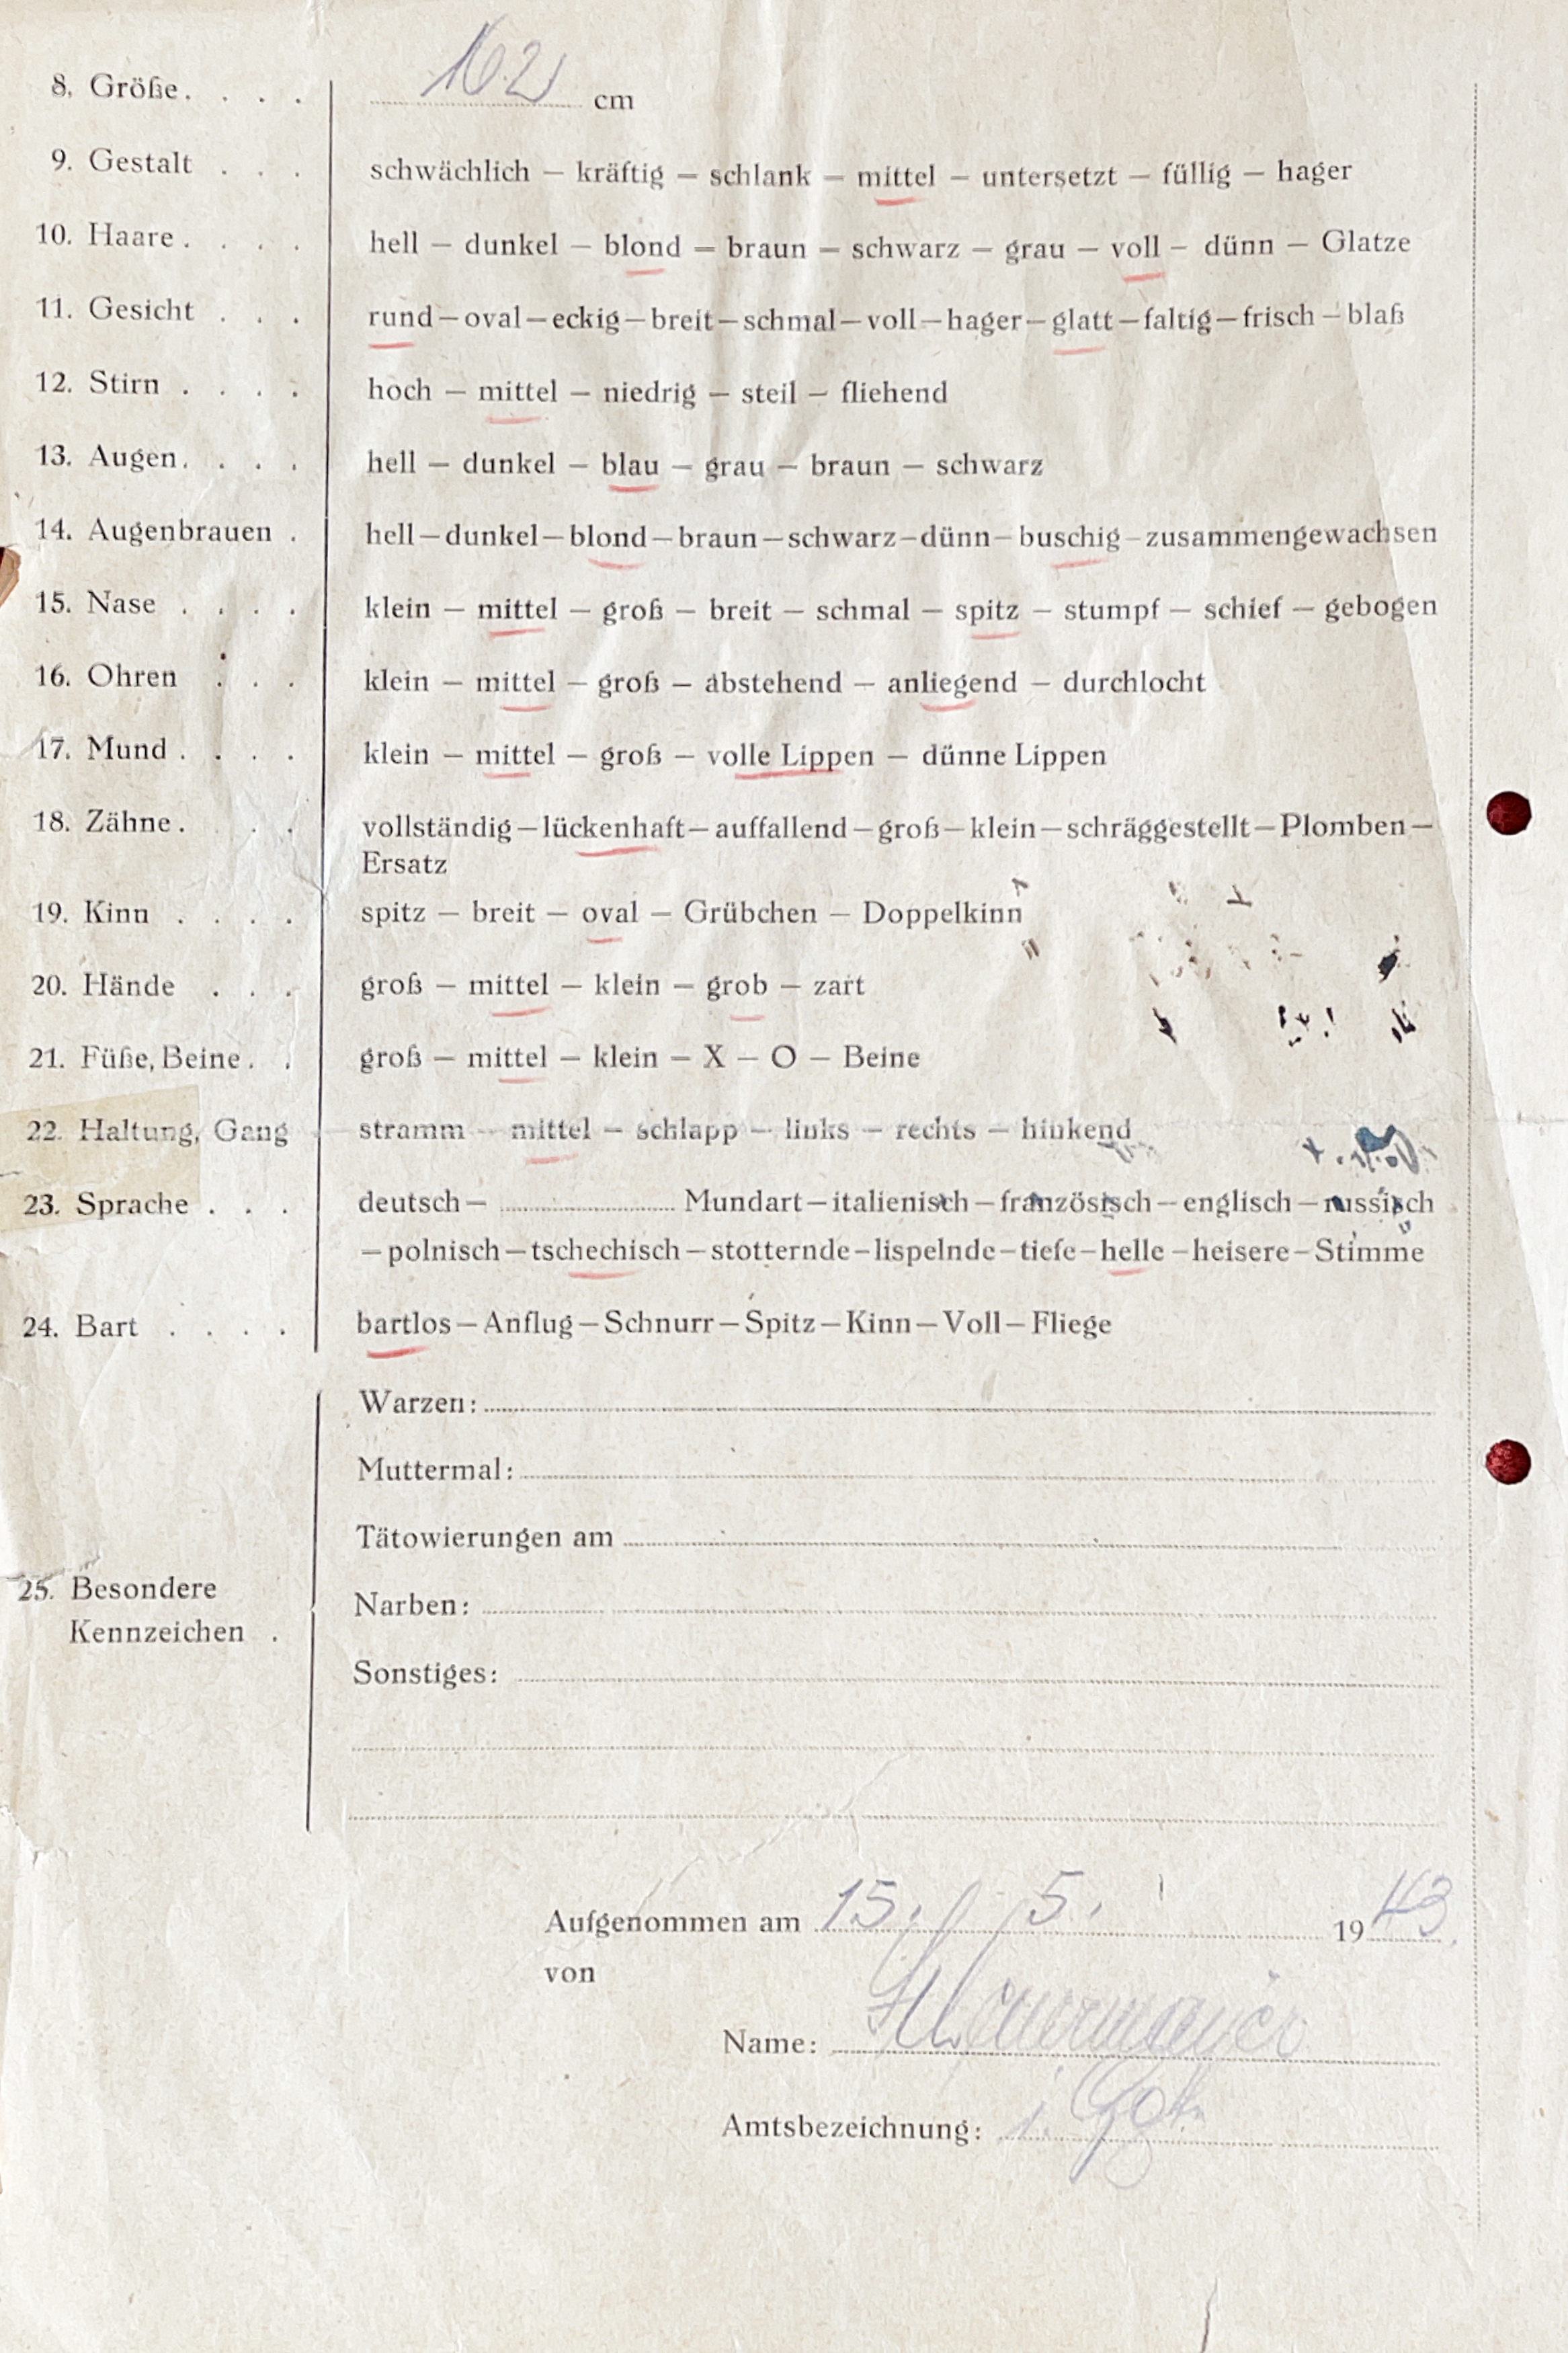 8. Größe. . . . 162 cm
9. Gestalt . . . schwächlich – kräftig – schlank – mittel – untersetzt – füllig – hager
10. Haare. . . . hell – dunkel – blond – braun – schwarz – grau – voll – dünn – Glatze
11. Gesicht . . . rund–oval–eckig–breit–schmal–voll–hager–glatt–faltig–frisch–blaß
12. Stirn . . . . hoch – mittel – niedrig – steil – fliehend
13. Augen. . . . hell – dunkel – blau – grau – braun – schwarz
14. Augenbrauen . hell–dunkel–blond–braun–schwarz–dünn–buschig–zusammengewachsen
15. Nase . . . . klein – mittel – groß – breit – schmal – spitz – stumpf – schief – gebogen
16. Ohren . . . klein – mittel – groß – abstehend – anliegend – durchlocht
17. Mund . . . . klein – mittel – groß – volle Lippen – dünne Lippen
18. Zähne. . . vollständig–lückenhaft–auffallend–groß–klein–schräggestellt–Plomben–
Ersatz
19. Kinn . . . . spitz – breit – oval – Grübchen – Doppelkinn
20. Hände . . . groß – mittel – klein – grob – zart
21. Füße, Beine. . groß – mittel – klein – X – O – Beine
22. Haltung, Gang stramm – mittel – schlapp – links – rechts – hinkend
23. Sprache . . . deutsch– ........ Mundart–italienisch–französisch–englisch–russisch
–polnisch–tschechisch–stotternde–lispelnde–tiefe–helle–heisere–Stimme
24. Bart . . . . bartlos–Anflug–Schnurr–Spitz–Kinn–Voll–Fliege
Warzen:
Muttermal:
Tätowierungen am
25. Besondere
Kennzeichen .
Narben:
Sonstiges:
Aufgenommen am 15. 5. 1943.
von
Name:
Amtsbezeichnung: